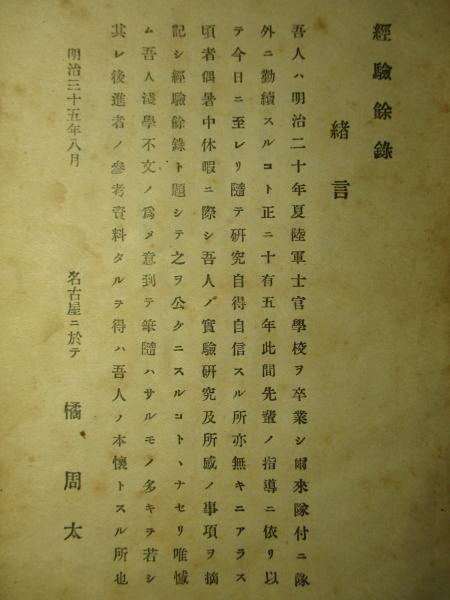 經驗餘錄
緒言
吾人ハ明治二十年夏陸軍士官學校ヲ卒業シ爾來隊付ニ隊
外ニ勤續スルコト正ニ十有五年此間先輩ノ指導ニ依リ以
テ今日ニ至レリ隨テ研究自得自信スル所亦無キニアラス
頃者偶暑中休暇ニ際シ吾人ノ實驗研究及所感ノ事項ヲ摘
記シ經驗餘錄ト題シテ之ヲ公ケニスルコトヽナセリ唯憾
ム吾人淺學不文ノ爲メ意到テ筆隨ハサルモノ多キヲ若シ
其レ後進者ノ參考資料タルヲ得ハ吾人ノ本懷トスル所也
明治三十五年八月
名古屋ニ於テ 橘周太